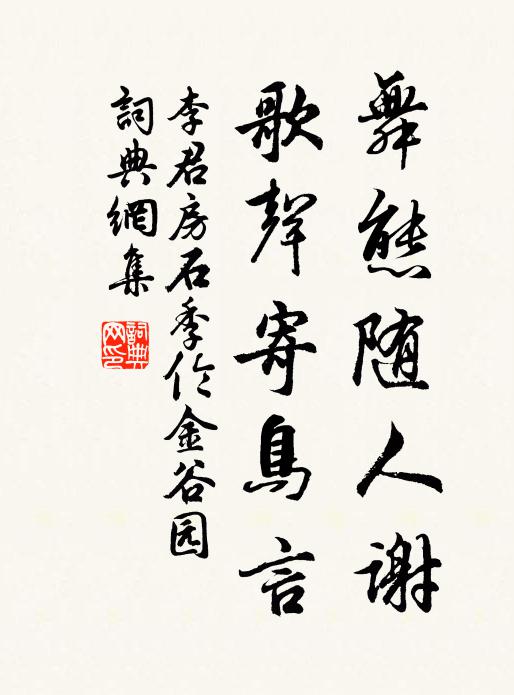 舞態随人謝
歌聲寄鳥言
李君房石季伦金谷园
詞典網集
詞典
网印